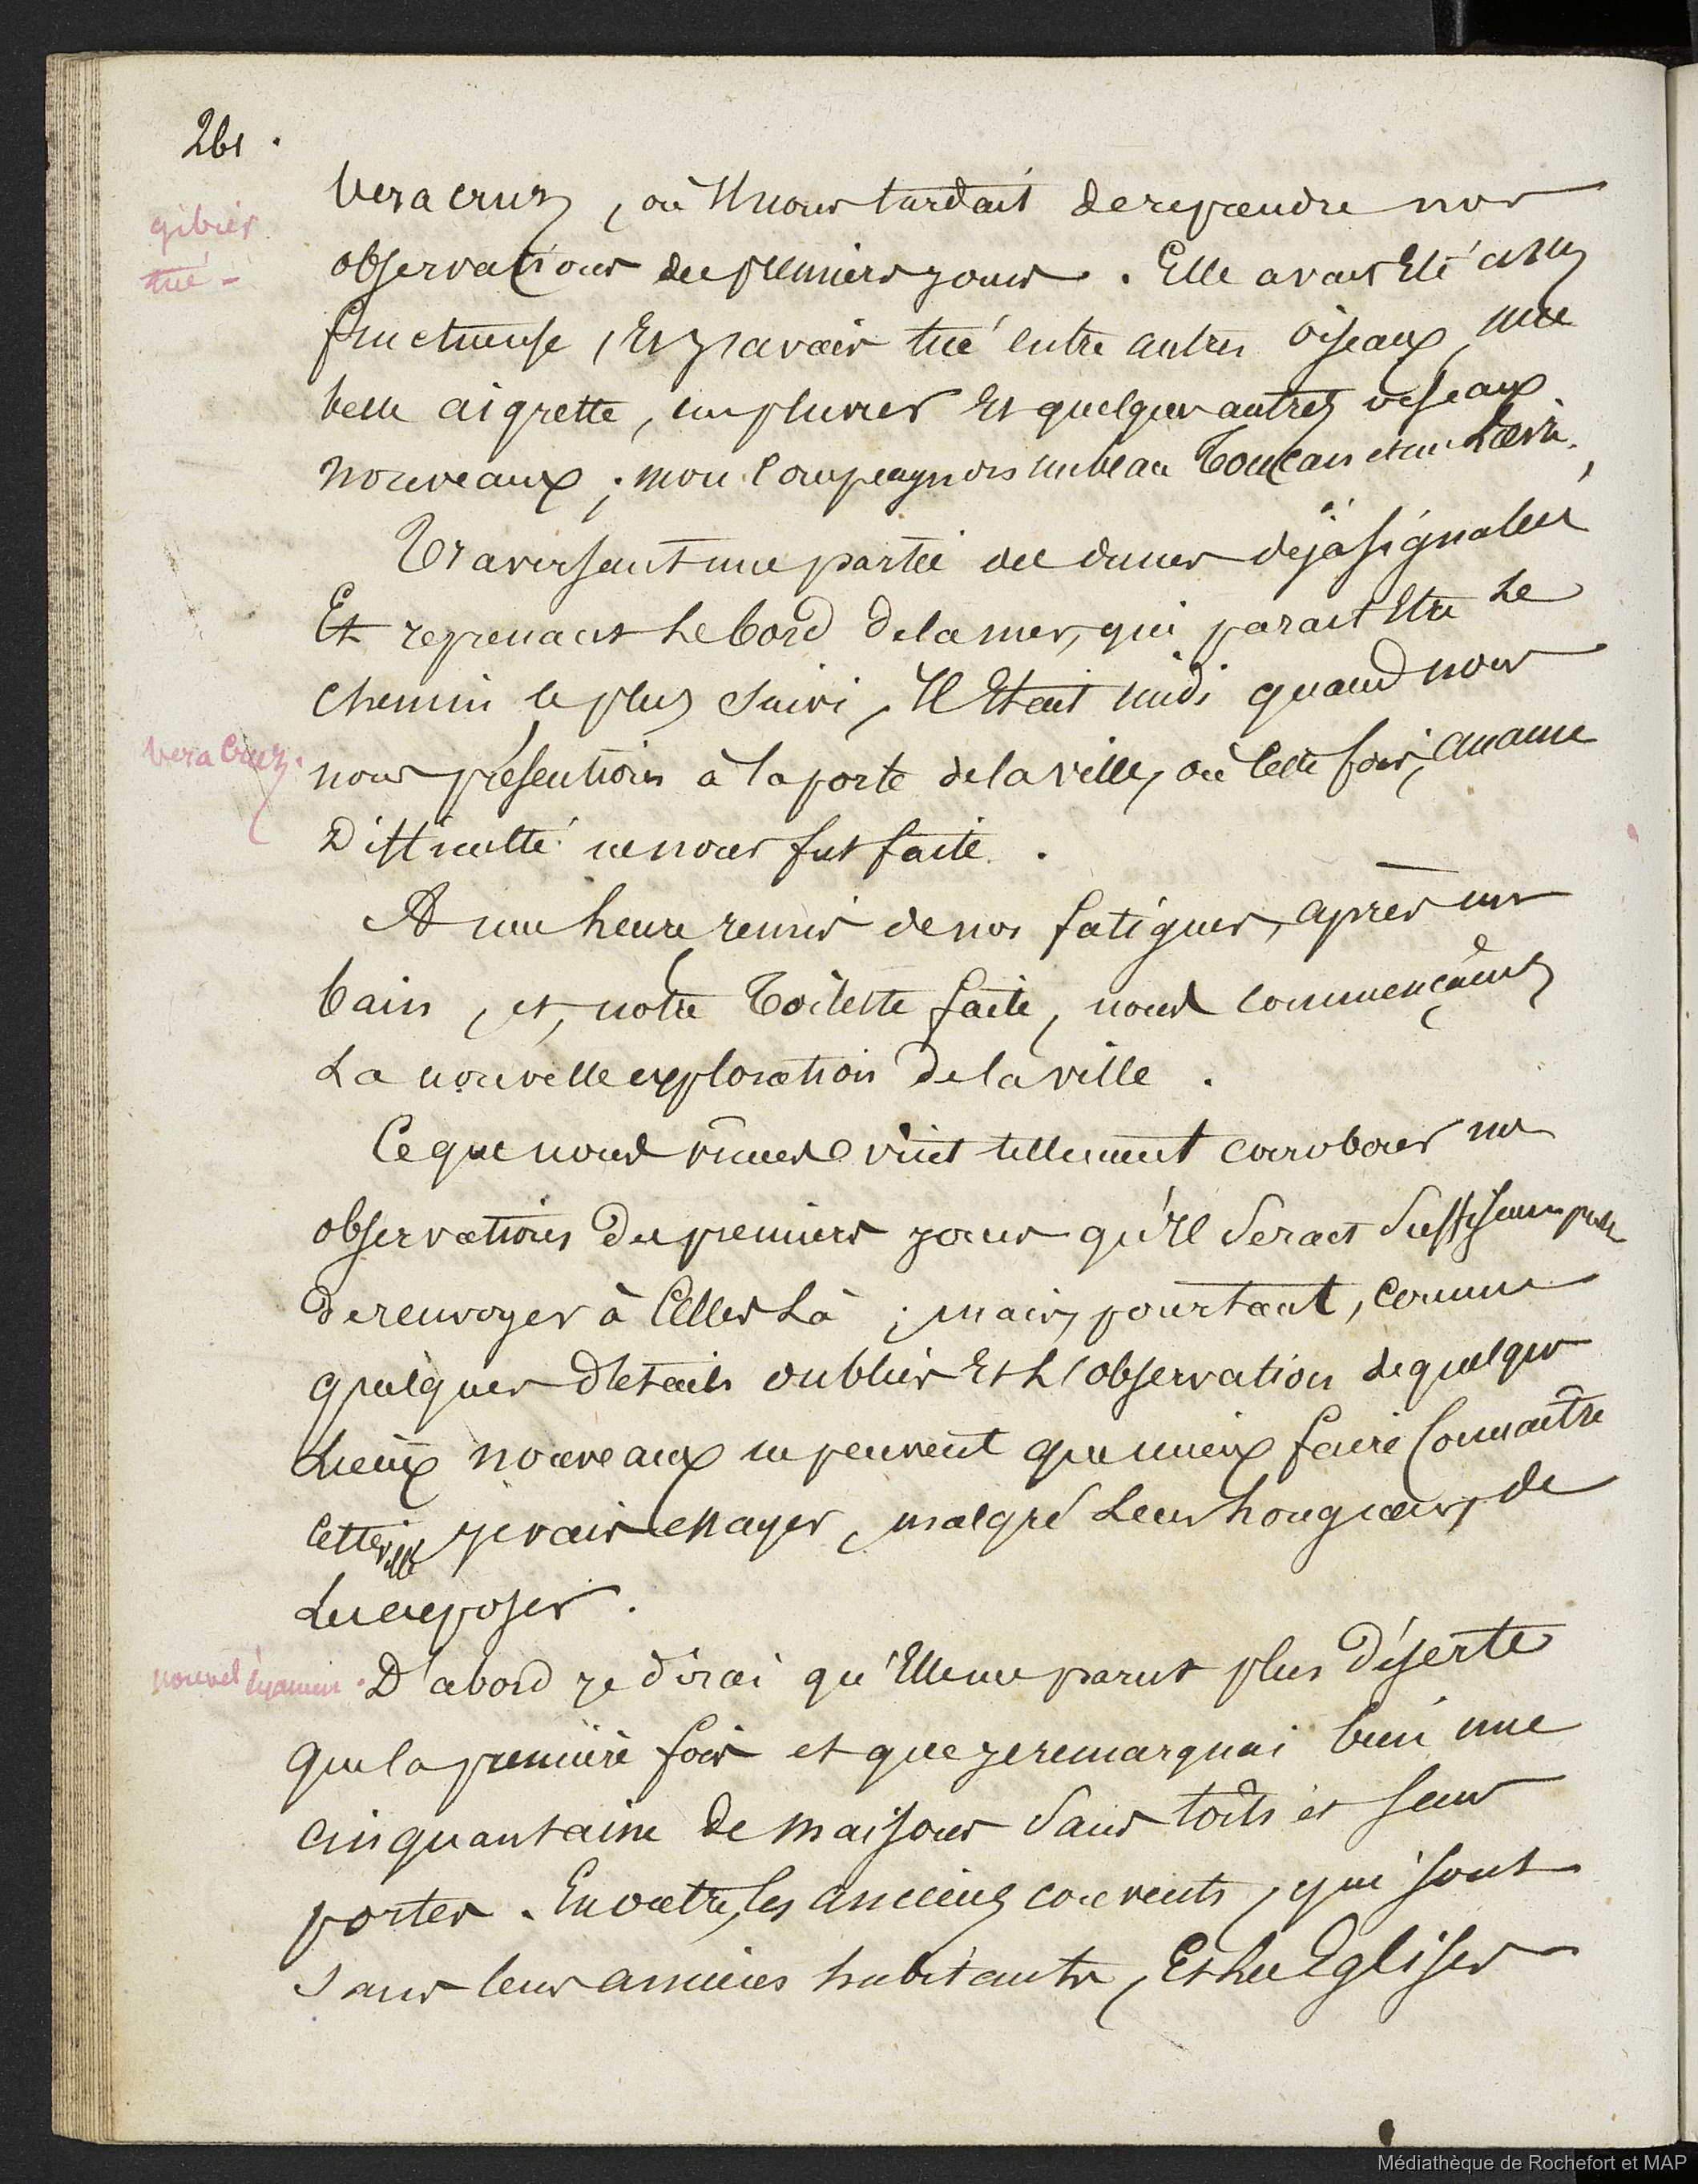 261.
gibier
tué -
Vera cruz, où Il nous tardait de reprendre nos
observations du premiers jours. Elle avait Eté assez
fructueuse, Et j'y avais tué entre autres oiseaux, une
belle aigrette, un pluvier Et quelques autres oiseaux
nouveaux ; mon Compagnons un beau Toucan et un
Traversant une partie de dunes déjà signalées
Et reprenant Le bord de la mer, qui parait Etre Le
chemin le plus suivi, Il Etait midi quand nous
Vera Cruz.
nous présentions à la porte de la ville, où Cette fois, aucune
Difficulté ne nous fut faite.
A une heure remis de nos fatigues, après un
bain, et, notre Toilette faite, nous commençames
La nouvelle exploration de la ville.
Ce que nous vimes vint tellement corroborer nos
observations du premiers jours qu'Il Serait Suffisamm
de renvoyer à Celles Là ; mais, pourtant, comme
quelques détails oubliés Et L'observation de quelques
Lieux nouveaux ne peuvent que mieux faire Connaître
Cette ville je vais essayer, malgré Leurs longueurs, de
Les exposer.
nouvel éxamen.
D'abord je dirai qu'Elle me parut plus Déserte
que la première fois et que je remarquai bien une
cinquantaine de maisons Sans toits et Sans
portes. En outre, les anciens couvents, qui sont
sans leurs anciens habitants, Et Les Eglises
Médiathèque de Rochefort et MAP